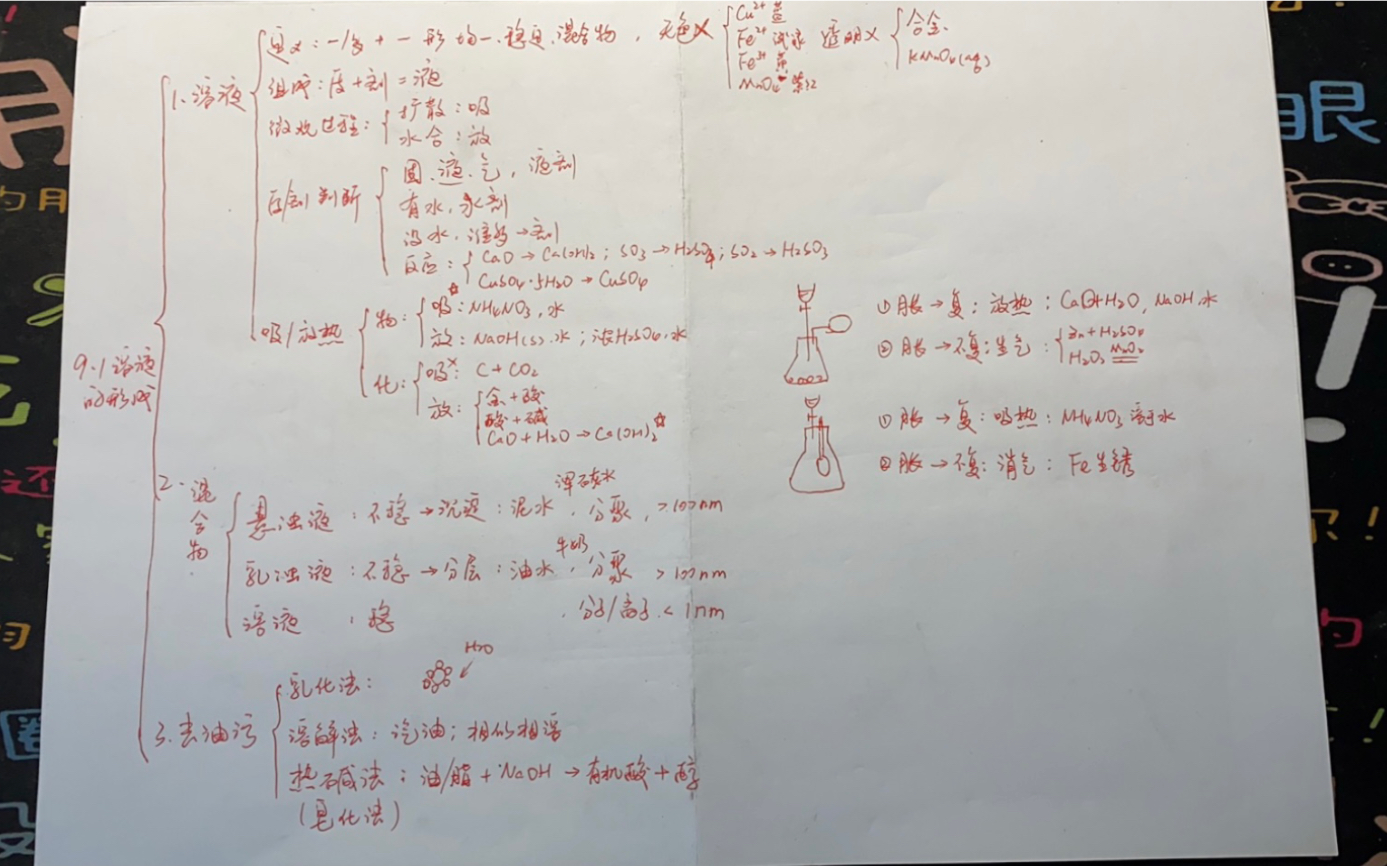 9.1 溶液的形成
1. 溶液
定义:一/多+一 形 均一、稳定、混合物,无色×
Cu²⁺ 蓝
Fe²⁺ 浅绿
Fe³⁺ 黄
MnO₄⁻ 紫红
透明×
合金
KMnO₄(aq)
组成:质+剂=液
微观过程:
扩散:吸
水合:放
质/剂判断
固、液、气,液剂
有水,水剂
没水,谁多→剂
反应:
CaO→Ca(OH)₂;SO₃→H₂SO₄;SO₂→H₂SO₃
CuSO₄·5H₂O→CuSO₄
吸/放热
物:
☆吸:NH₄NO₃,水
放:NaOH(s).水;浓H₂SO₄,水
化:
吸×:C+CO₂
放:
金+酸
酸+碱
CaO+H₂O→Ca(OH)₂☆
① 胀→复:放热:CaO+H₂O,NaOH,水
② 胀→不复:生气:
Zn+H₂SO₄
H₂O₂ MnO₂
① 胀→复:吸热:NH₄NO₃溶于水
② 胀→不复:消气:Fe生锈
2. 混合物
悬浊液:不稳→沉淀:泥水,浑石灰水,分聚,>100nm
乳浊液:不稳→分层:油水,牛奶,分聚 >100nm
溶液,稳,分子/离子<1nm
3. 去油污
乳化法:
H₂O
溶解法:汽油;相似相溶
热碱法:油/脂+NaOH→有机酸+醇
(皂化法)